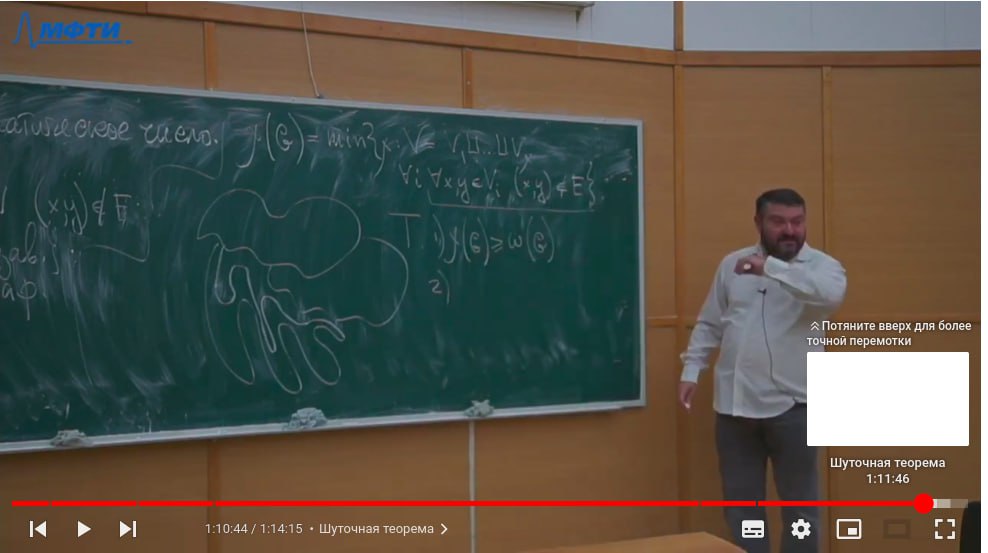 МФТИ
число. χ(G) = min{χ: V = V₁ ⊔...⊔ Vχ
∀i ∀x,y ∈ Vᵢ (x,y) ∉ E}
(x,y) ∉ E
T 1) χ(G) ⩾ ω(G)
2)
Потяните вверх для более
точной перемотки
Шуточная теорема
1:11:46
1:10:44 / 1:14:15 • Шуточная теорема